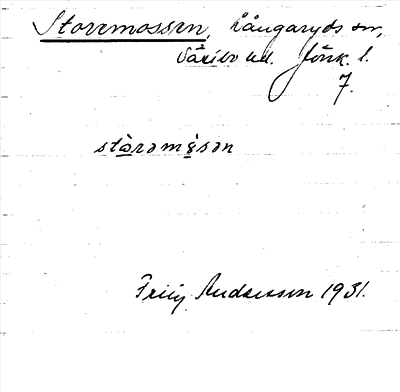 Storemossen, Långaryds sn,
Västbo hd. Jönk. l.
7.
stòrəmǫ̀sən
Frily Andersson 1931.